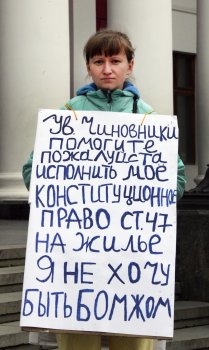 Ув. Чиновники
помогите
пожалуйста
исполнить моё
конституционное
право ст.47
на жильё
я не хочу
быть бомжом